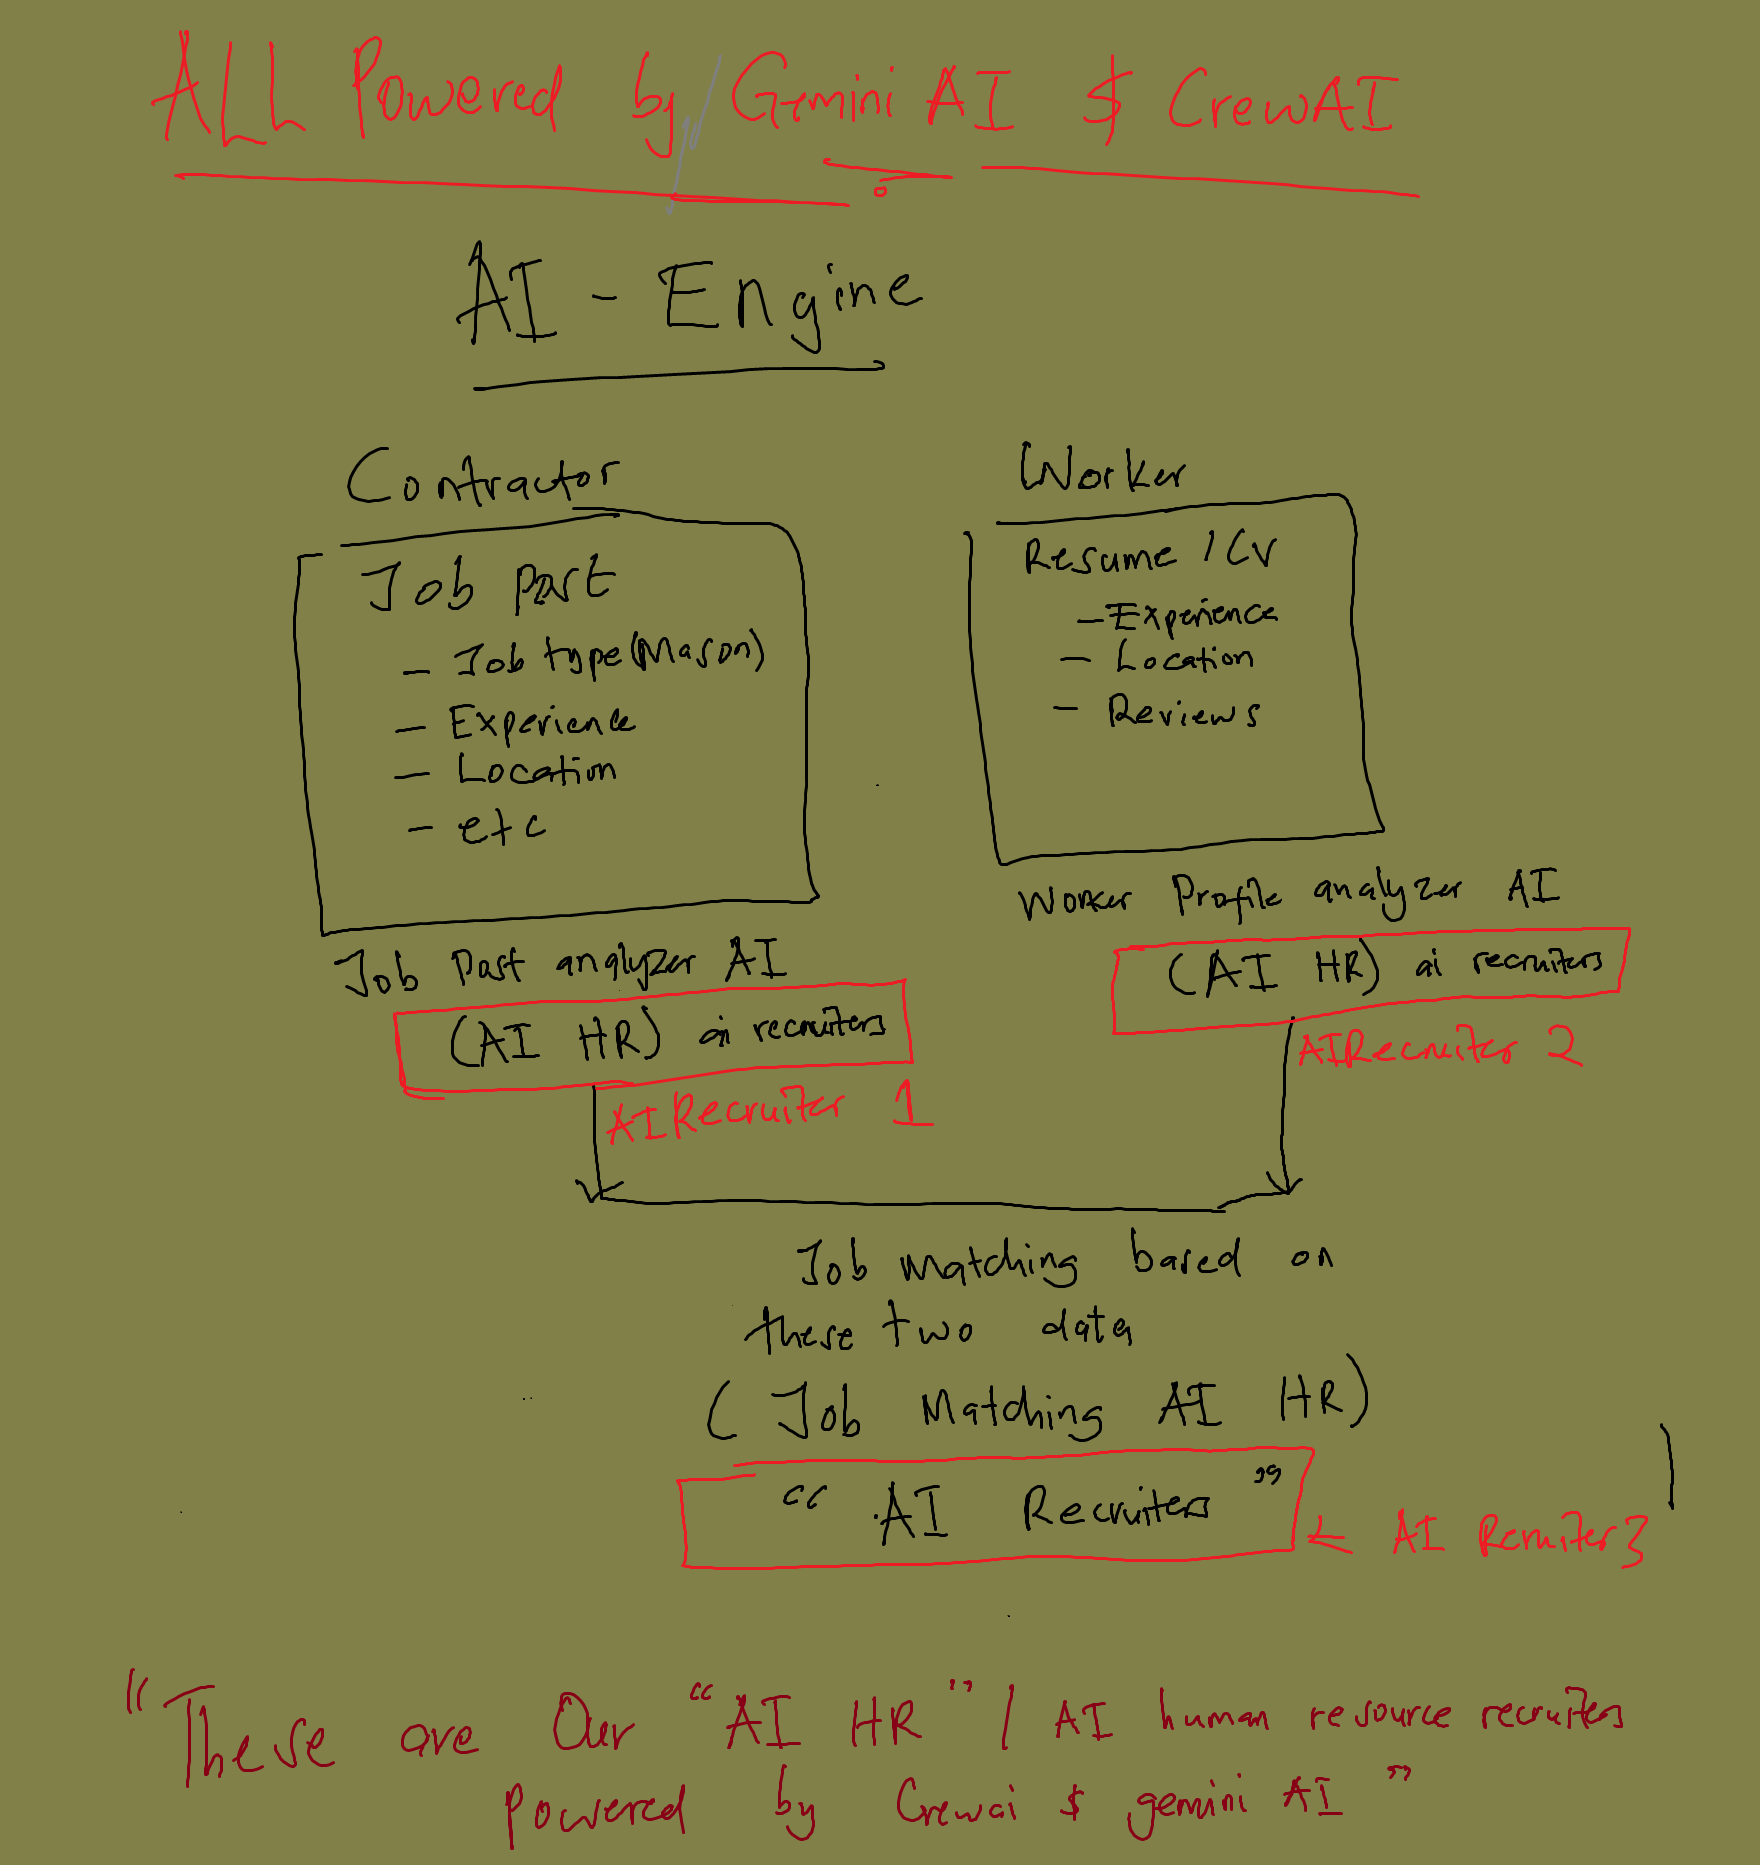 ALL Powered by Gemini AI $ CrewAI
AI - Engine
Contractor
Job Post
- Job type (Mason)
- Experience
- Location
- etc
Job Post analyzer AI
(AI HR) ai recruiters
AI Recruiter 1
Worker
Resume / CV
- Experience
- Location
- Reviews
Worker Profile analyzer AI
(AI HR) ai recruiters
AI Recruiter 2
Job matching based on
these two data
( Job Matching AI HR)
“ AI Recruiters ”
AI Recruiter 3
"These are Our “AI HR” / AI human resource recruiters
powered by Crewai $ gemini AI ”